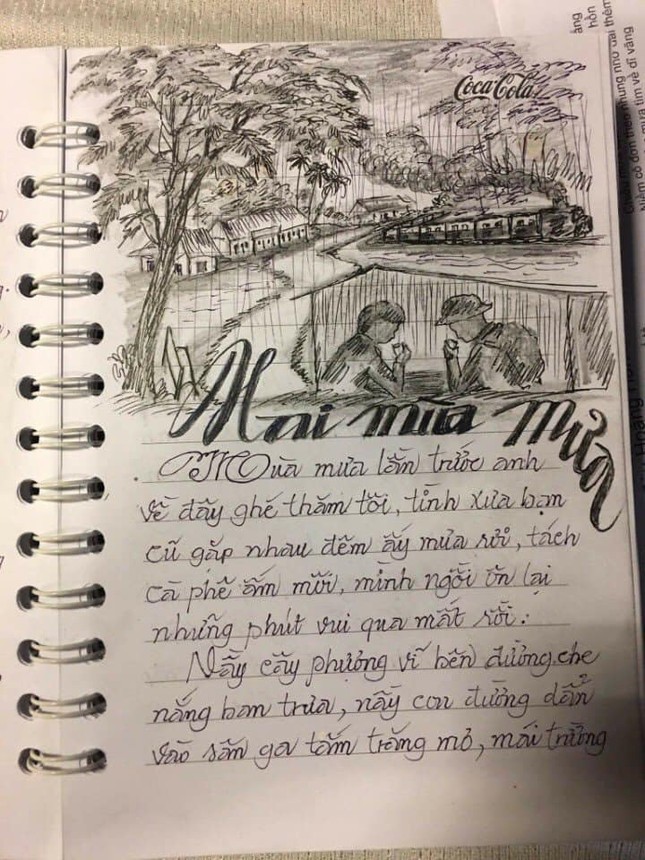 Coca-Cola
Hai mùa mưa
Mùa mưa lần trước anh
về đây ghé thăm tôi, tình xưa bạn
cũ gặp nhau đêm ấy mưa rơi, tách
cà phê ấm môi, mình ngồi ôn lại
những phút vui qua mất rồi.
Nầy cây phượng vĩ bên đường che
nắng ban trưa, nầy con đường dẫn
vào sân ga tắm trăng mơ, mái trường